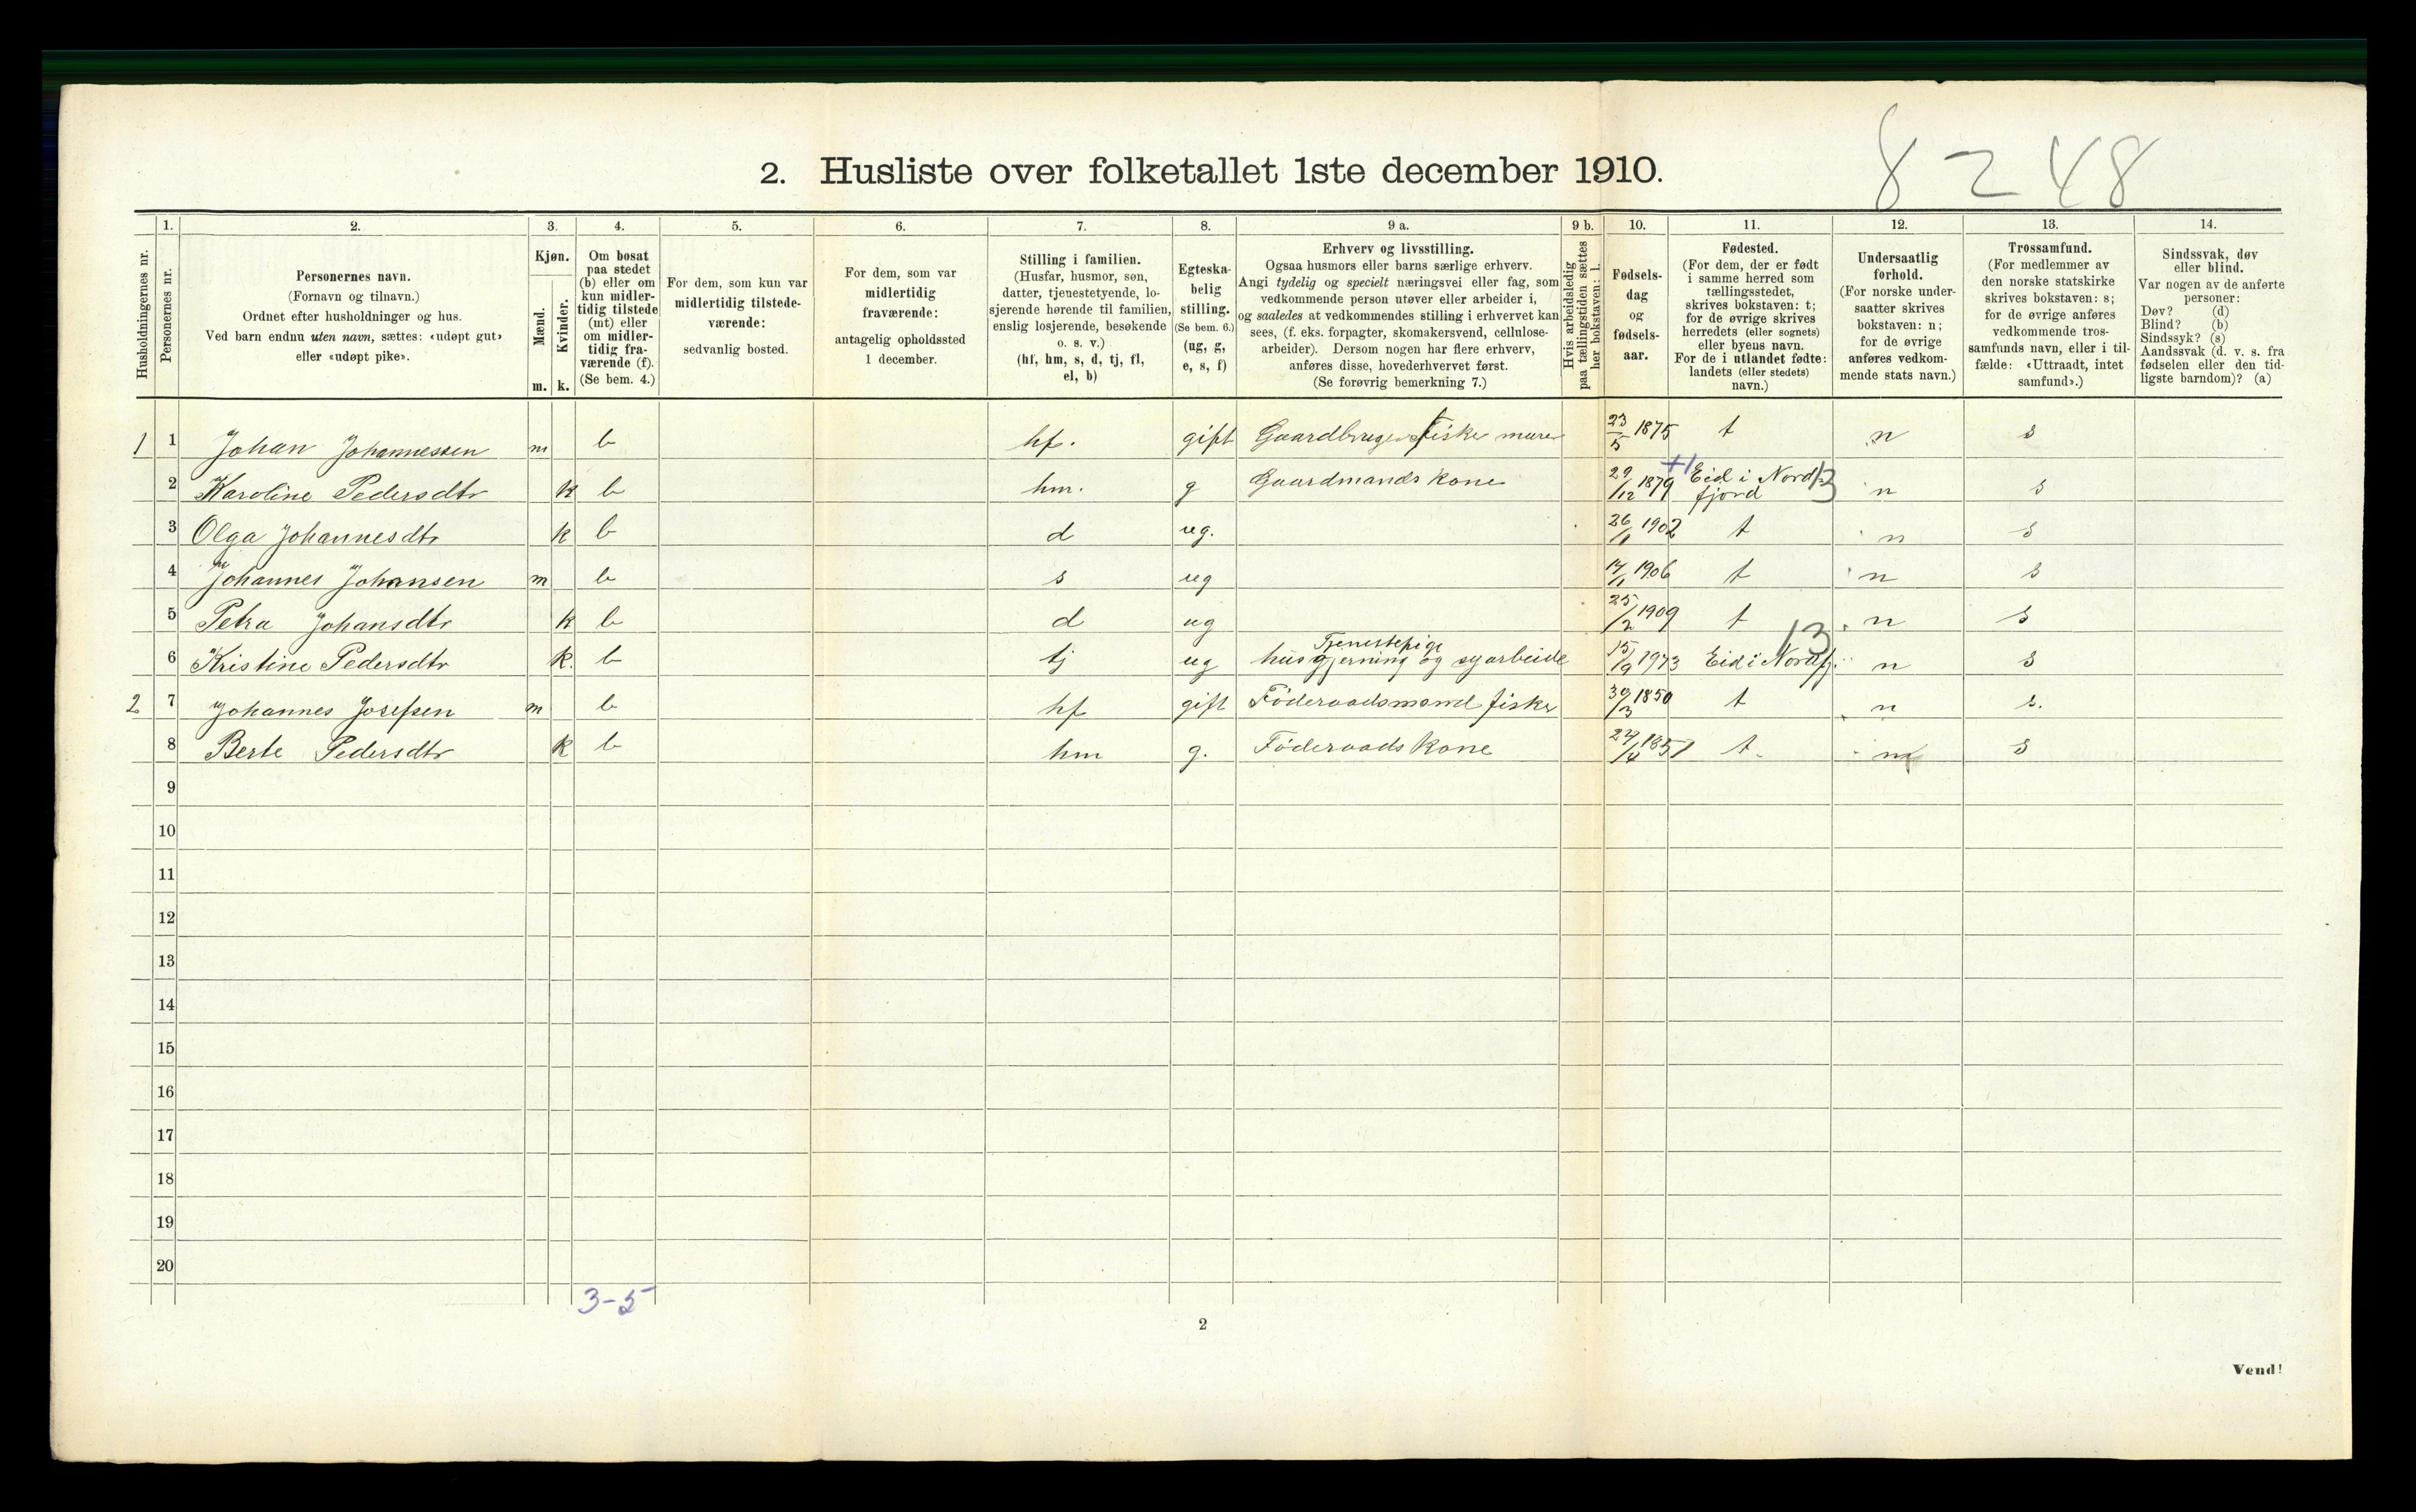 8 2 48
2. Husliste over folketallet 1ste december 1910.
Husholdningernes nr.
1.
Personernes nr.
2.
Personernes navn.
(Fornavn og tilnavn.)
Ordnet efter husholdninger og hus.
Ved barn endnu uten navn, sættes: «udøpt gut»
eller «udøpt pike».
3.
Kjøn.
Mænd.
Kvinder.
m. k.
4.
Om bosat
paa stedet
(b) eller om
kun midler-
tidig tilstede
(mt) eller
om midler-
tidig fra-
værende (f).
(Se bem. 4.)
5.
For dem, som kun var
midlertidig tilstede-
værende:
sedvanlig bosted.
6.
For dem, som var
midlertidig
fraværende:
antagelig opholdssted
1 december.
7.
Stilling i familien.
(Husfar, husmor, søn,
datter, tjenestetyende, lo-
sjerende hørende til familien,
enslig losjerende, besøkende
o. s. v.)
(hf, hm, s, d, tj, fl,
el, b)
8.
Egteska-
belig
stilling.
(Se bem. 6.)
(ug, g,
e, s, f)
9 a.
Erhverv og livsstilling.
Ogsaa husmors eller barns særlige erhverv.
Angi tydelig og specielt næringsvei eller fag, som
vedkommende person utøver eller arbeider i,
og saaledes at vedkommendes stilling i erhvervet kan
sees, (f. eks. forpagter, skomakersvend, cellulose-
arbeider). Dersom nogen har flere erhverv,
anføres disse, hovederhvervet først.
(Se forøvrig bemerkning 7.)
9 b.
Hvis arbeidsledig
paa tællingstiden sættes
her bokstaven: l.
10.
Fødsels-
dag
og
fødsels-
aar.
11.
Fødested.
(For dem, der er født
i samme herred som
tællingsstedet,
skrives bokstaven: t;
for de øvrige skrives
herredets (eller sognets)
eller byens navn.
For de i utlandet fødte:
landets (eller stedets)
navn.)
12.
Undersaatlig
forhold.
(For norske under-
saatter skrives
bokstaven: n;
for de øvrige
anføres vedkom-
mende stats navn.)
13.
Trossamfund.
(For medlemmer av
den norske statskirke
skrives bokstaven: s;
for de øvrige anføres
vedkommende tros-
samfunds navn, eller i til-
fælde: «Uttraadt, intet
samfund».)
14.
Sindssvak, døv
eller blind.
Var nogen av de anførte
personer:
Døv? (d)
Blind? (b)
Sindssyk? (s)
Aandssvak (d. v. s. fra
fødselen eller den tid-
ligste barndom)? (a)
1 1 Johan Johannessen m b hf. gift Gaardbruger fisker murer 23/5 1875 t n s
2 Karoline Pedersdtr k b hm. g Gaardmands Kone 29/12 1879 Eid i Nord 13
fjord n s
3 Olga Johannesdtr k b d ug. 26/1 1902 t n s
4 Johannes Johansen m b s ug 14/1 1906 t n s
5 Petra Johansdtr k b d ug 25/2 1909 t n s
Tjenestepige 13
6 Kristine Pedersdtr k. b tj ug husgjerning og syarbeide 15/9 1973 Eid i Nordfj. n s
2 7 Johannes Josefsen m b hf gift Föderaadsmand fisker 30/3 1850 t n s.
8 Berte Pedersdtr k b hm g. Föderaads Kone 24/4 1851 t. n s
9
10
11
12
13
14
15
16
17
18
19
20
3-5
2
Vend!